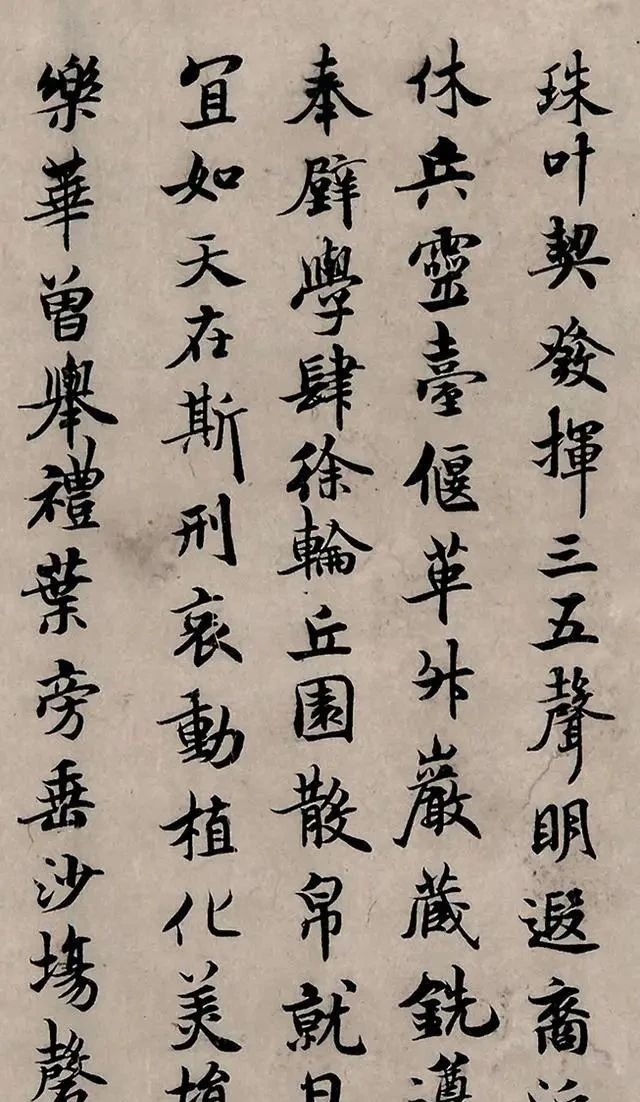 珠叶契發揮三五聲明遐裔
休兵靈臺偃革升巖蔵銑
奉璧學肆徐輪丘園散帛就日
宜如天在斯刑哀動植化美
樂華曾舉禮葉旁垂沙塲罄